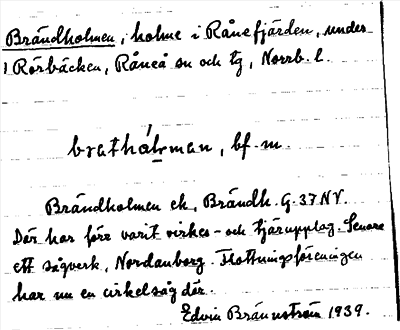 Brändholmen, holme i Rånefjärden, under
Rörbäcken, Råneå sn och tg, Norrb. l.
brathálman, bf. m.
Brändholmen ek, Brändh. G. 37 NV.
Där har förr varit virkes- och tjärupplag. Senare
ett sågverk, Nordanborg. Flottningsföreningen
har nu en cirkelsåg där.
Edvin Brännström 1939.